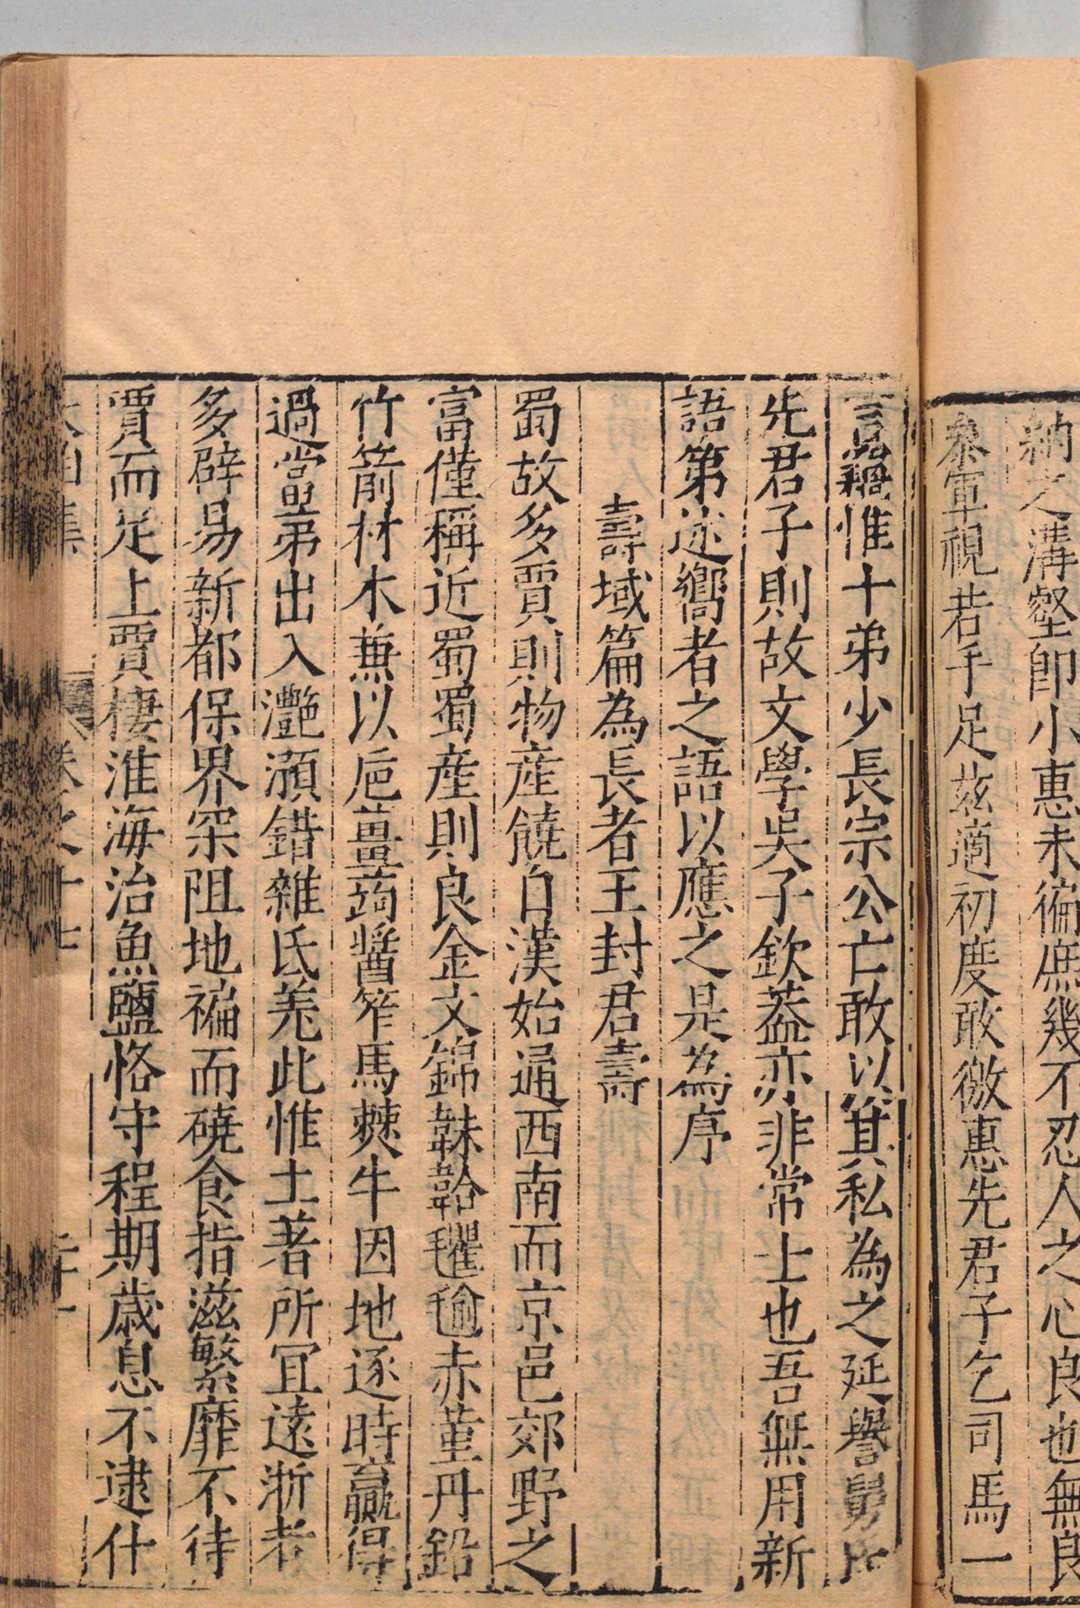 納之溝壑即小惠未徧庶幾不忍人之心良也無良
叅軍視若手足茲適初度敢徼惠先君子乞司馬一
言籍惟十弟少長宗公亡敢以箕私為之延譽舅氏
先君子則故文學吳子欽蓋亦非常士也吾無用新
語第述嚮者之語以應之是為序
壽域篇為長者王封君壽
蜀故多賈則物產饒自漢始通西南而京邑郊野之
富僅稱近蜀蜀產則良金文錦韎韐氍毹赤堇丹鉛
竹箭材木蕪以巵薑蒟醬笮馬僰牛因地逐時贏得
過當弟出入灩澦錯雜氐羌此惟土著所冝遠浙者
多辟易新都保界罙阻地褊而磽食指滋繁靡不待
賈而足上賈棲淮海治魚鹽恪守程期歲息不逮什
太函集 卷之十七 二十一